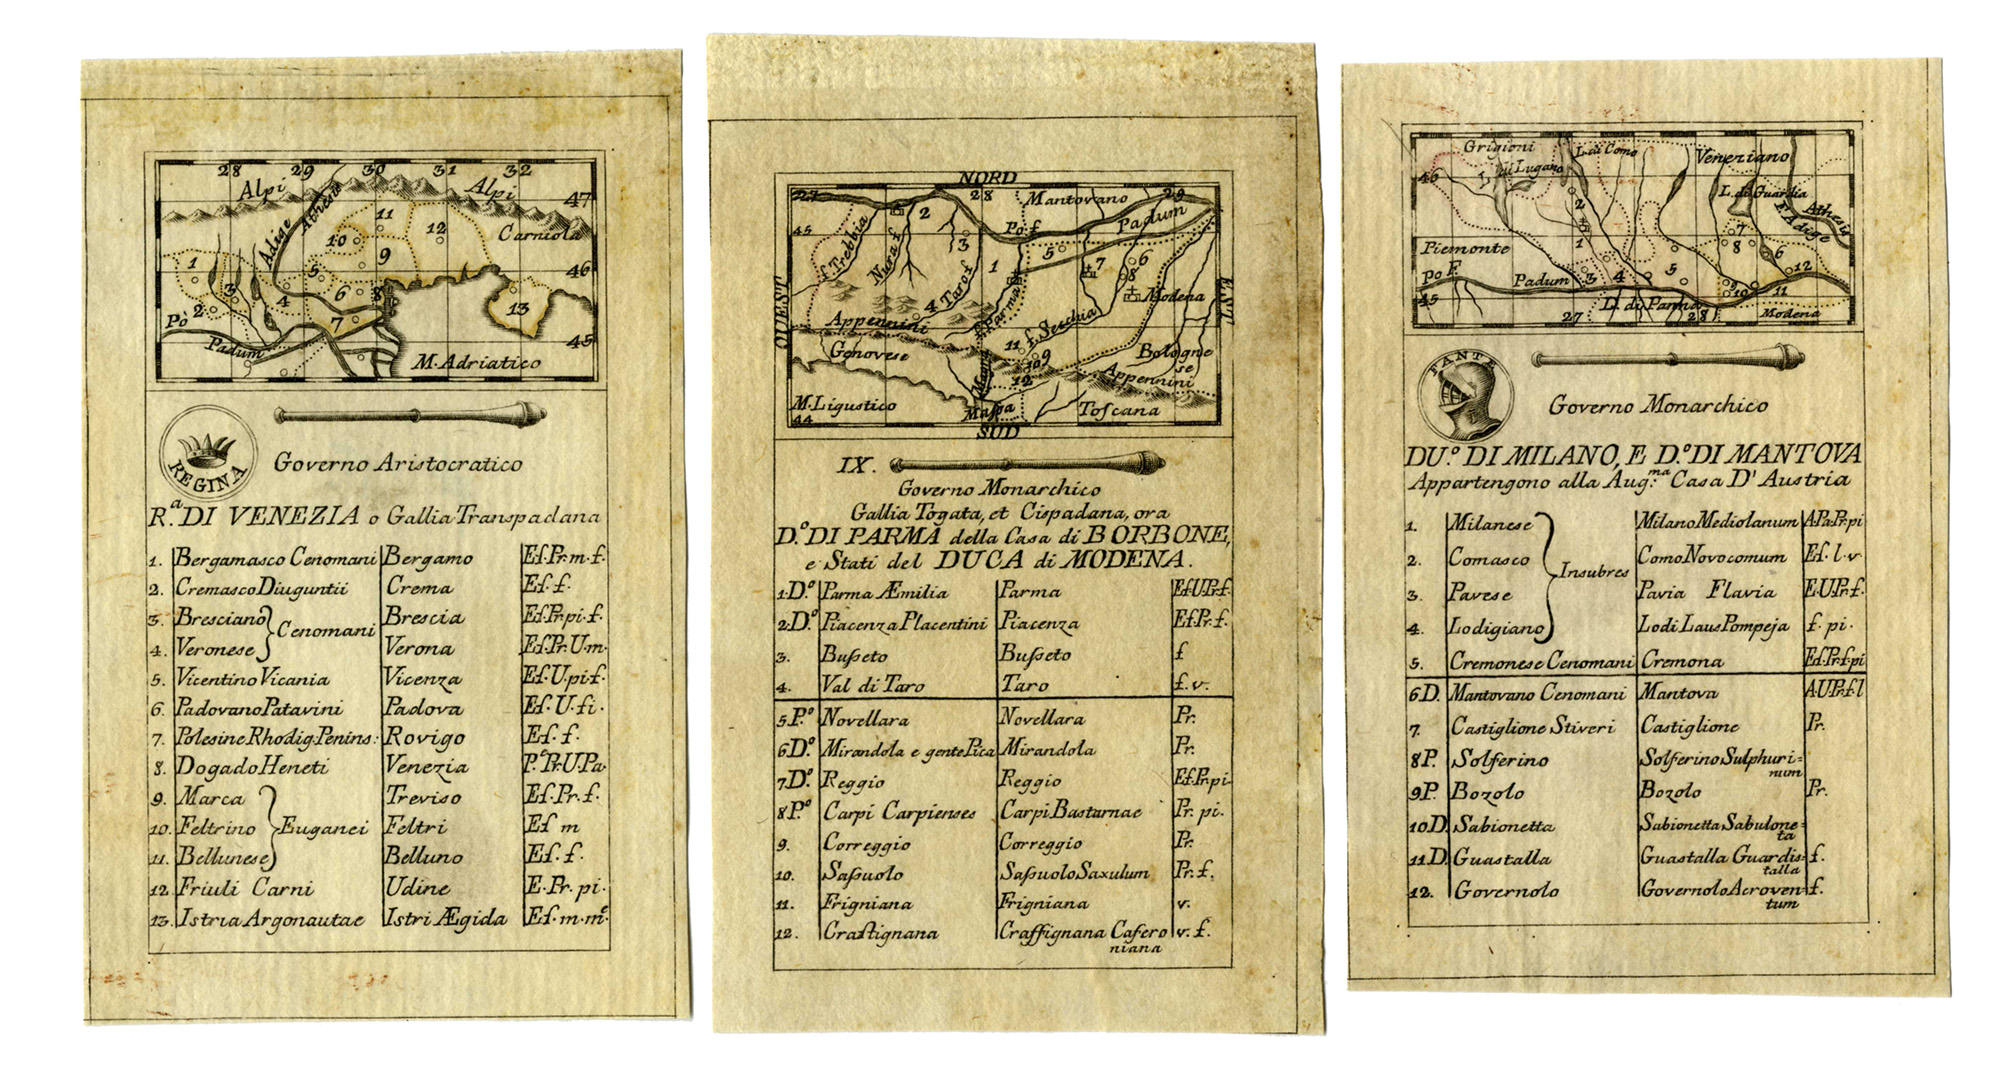 28 29 30 31 32
Alpi Alpi
47
Athesis
Adige
Carniola
11
10
12
9
1
5
46
3
4
6
8
2
13
7
Pò
Padum
45
M. Adriatico
REGINA
Governo Aristocratico
R.a DI VENEZIA o Gallia Transpadana
1. Bergamasco Cenomani Bergamo Ef.Pr.m.f.
2. Cremasco Diuguntii Crema Ef. f.
3. Bresciano Brescia Ef.Pr.pi.f.
Cenomani
4. Veronese Verona Ef.Pr.U.m.
5. Vicentino Vicania Vicenza Ef.U.pi.f.
6. Padovano Patavini Padova Ef. U. fi.
7. Polesine Rhodig. Penins: Rovigo Ef. f.
8. Dogado Heneti Venezia P.e Pr.U.Pa
9. Marca Treviso Ef.Pr. f.
10. Feltrino Euganei Feltri Ef m
11. Bellunese Belluno Ef. f.
12. Friuli Carni Udine E. Pr. pi.
13. Istria Argonautae Istri Ægida Ef. m. m.e
NORD
27 28 29
Mantovano
2
Padum
45
Po f.
f. Trebbia
Nura f.
3
5
1
7
6
8
Taro f.
4
Modena
OUEST
EST
f. Parma
Appennini
f. Secchia
Genovese
11
9
10
12
Bologne
se
Magra
Appennini
M. Ligustico
Massa
Toscana
44
SUD
IX.
Governo Monarchico
Gallia Togata, et Cispadana, ora
D.o DI PARMA della Casa di BORBONE,
e Stati del DUCA di MODENA.
1. D.o Parma Æmilia Parma Ef.U.Pr.f.
2. D.o Piacenza Placentini Piacenza Ef.Pr.f.
3. Busseto Busseto f
4. Val di Taro Taro f. v.
5 P.o Novellara Novellara Pr.
6 D.o Mirandola e gente Pica Mirandola Pr.
7 D.o Reggio Reggio Ef.Pr.pi
8 P.o Carpi Carpienses Carpi Bastarnae Pr. pi.
9. Correggio Correggio Pr.
10. Sassuolo Sassuolo Saxulum Pr. f.
11. Frigniana Frigniana v.
12. Crastignana Craffignana Cafero v. f.
niana
Grigioni
L. di Como
Veneziano
46
L. di Lugano
L. di Guardia
2
Athesis
F. Adige
7
1
8
Piemonte
6
12
Po F.
3
4
5
Padum
10
11
45
D. di Parma
27 28
Modena
FANTE
Governo Monarchico
DU.o DI MILANO, E D.o DI MANTOVA
Appartengono alla Aug.ma Casa D' Austria
1. Milanese Milano Mediolanum A.Pa.Pr.pi
2. Comasco Como Novocomum Ef. l. v.
Insubres
3. Pavese Pavia Flavia E.U.Pr.f.
4. Lodigiano Lodi Laus Pompeja f. pi.
5. Cremonese Cenomani Cremona Ef.Pr.f.pi
6 D. Mantovano Cenomani Mantova A.U.Pr.f.l
7. Castiglione Stiveri Castiglione Pr.
8 P. Solferino Solferino Sulphuri=
num
9 P. Bozolo Bozolo Pr.
10 D. Sabionetta Sabionetta Sabulone=
ta
11 D. Guastalla Guastalla Guardis= f.
talla
12. Governolo Governolo Acroven= f.
tum